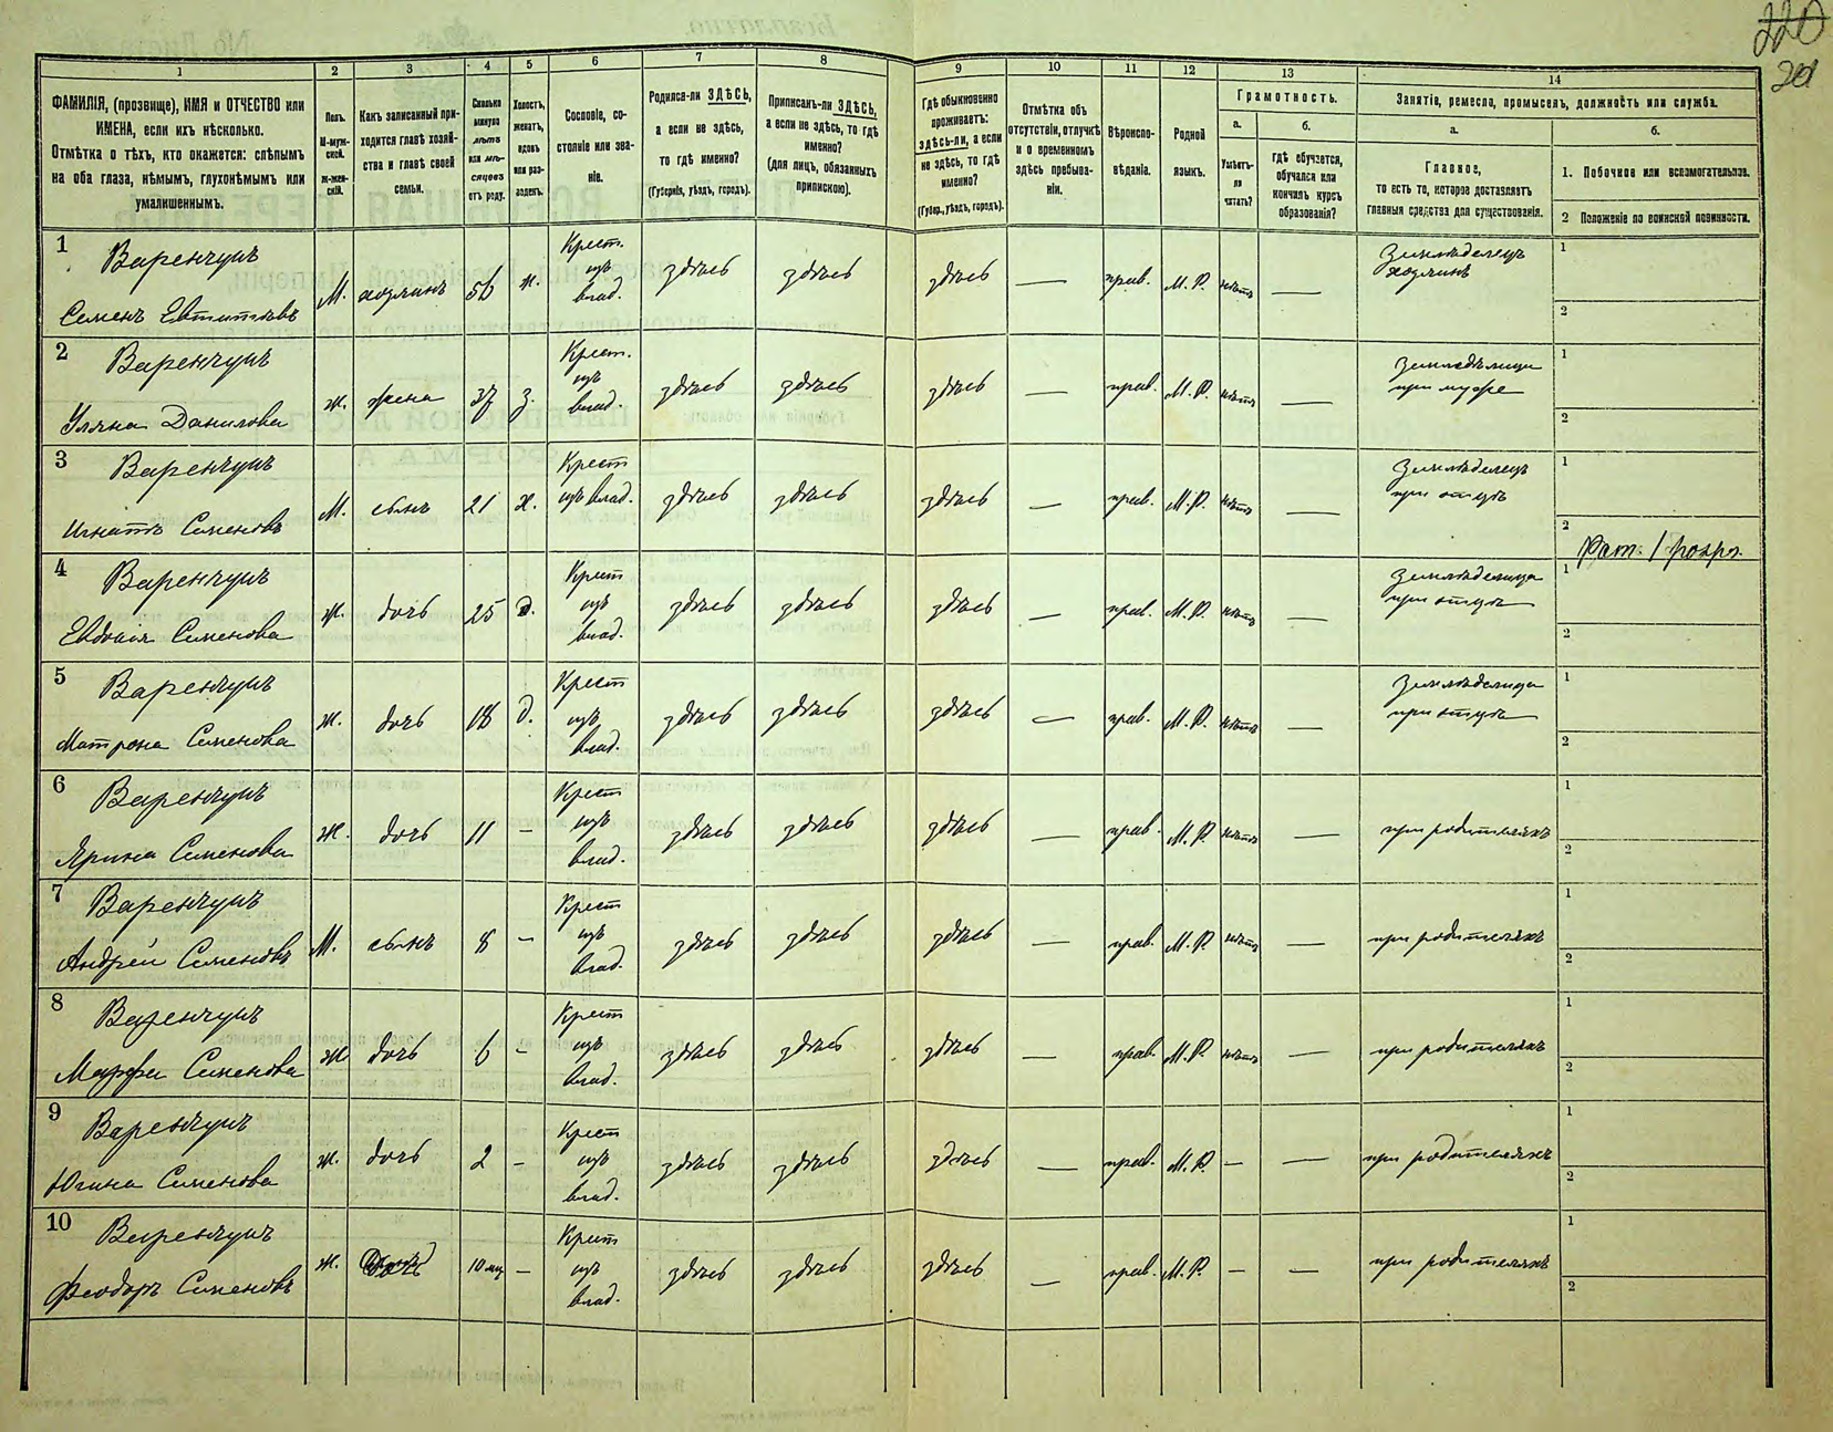 220
20
1 2 3 4 5 6 7 8 9 10 11 12 13 14
ФАМИЛІЯ, (прозвище), ИМЯ и ОТЧЕСТВО или
ИМЕНА, если ихъ нѣсколько.
Отмѣтка о тѣхъ, кто окажется: слѣпымъ
на оба глаза, нѣмымъ, глухонѣмымъ или
умалишеннымъ.
Полъ.
М-муж-
ской.
Ж-жен-
скій.
Какъ записанный при-
ходится главѣ хозяй-
ства и главѣ своей
семьи.
Сколько
минуло
лѣтъ
или мѣ-
сяцевъ
отъ роду.
Холостъ,
женатъ,
вдовъ
или раз-
веденъ.
Сословіе, со-
стояніе или зва-
ніе.
Родился-ли ЗДѢСЬ,
а если не здѣсь,
то гдѣ именно?
(Губернія, уѣздъ, городъ).
Приписанъ-ли ЗДѢСЬ,
а если не здѣсь, то гдѣ
именно?
(для лицъ, обязанныхъ
припискою).
Гдѣ обыкновенно
проживаетъ:
здѣсь-ли, а если
не здѣсь, то гдѣ
именно?
(Губер., уѣздъ, городъ).
Отмѣтка объ
отсутствіи, отлучкѣ
и о временномъ
здѣсь пребыва-
ніи.
Вѣроиспо-
вѣданіе.
Родной
языкъ.
Грамотность.
а.
Умѣетъ-
ли
читать?
б.
гдѣ обучается,
обучался или
кончилъ курсъ
образованія?
Занятіе, ремесло, промыселъ, должность или служба.
а.
Главное,
то есть то, которое доставляетъ
главныя средства для существованія.
б.
1. Побочное или вспомогательное.
2 Положеніе по воинской повинности.
1 Варенчукъ
Семенъ Евтитіевъ М. хозяинъ 56 ж. Крест. изъ влад. здѣсь здѣсь здѣсь — прав. М. Р. нѣтъ — Земледелецъ хозяинъ 1 2
2 Варенчукъ
Уляна Данилова ж. жена 37 з. Крест. изъ влад. здѣсь здѣсь здѣсь — прав. М. Р. нѣтъ — Земледѣлица при мужѣ 1 2
3 Варенчукъ
Игнатъ Семеновъ М. сынъ 21 х. Крест изъ влад. здѣсь здѣсь здѣсь — прав. М. Р. нѣтъ — Земледелецъ при отцѣ 1 2 Рат. 1 разр.
4 Варенчукъ
Евдокія Семенова ж. дочь 25 д. Крест изъ влад. здѣсь здѣсь здѣсь — прав. М. Р. нѣтъ — Земледелица при отцѣ 1 2
5 Варенчукъ
Матрона Семенова ж. дочь 18 д. Крест изъ влад. здѣсь здѣсь здѣсь — прав. М. Р. нѣтъ — Земледелица при отцѣ 1 2
6 Варенчукъ
Ярина Семенова ж. дочь 11 — Крест изъ влад. здѣсь здѣсь здѣсь — прав. М. Р. нѣтъ — при родителяхъ 1 2
7 Варенчукъ
Андрей Семеновъ М. сынъ 8 — Крест изъ влад. здѣсь здѣсь здѣсь — прав. М. Р. нѣтъ — при родителяхъ 1 2
8 Варенчукъ
Марфа Семенова ж дочь 6 — Крест изъ влад. здѣсь здѣсь здѣсь — прав. М. Р. нѣтъ — при родителяхъ 1 2
9 Варенчукъ
Югина Семенова ж. дочь 2 — Крест изъ влад. здѣсь здѣсь здѣсь — прав. М. Р. — — при родителяхъ 1 2
10 Варенчукъ
Феодоръ Семеновъ ж. 10 мц — Крест изъ влад. здѣсь здѣсь здѣсь — прав. М. Р. — — при родителяхъ 1 2